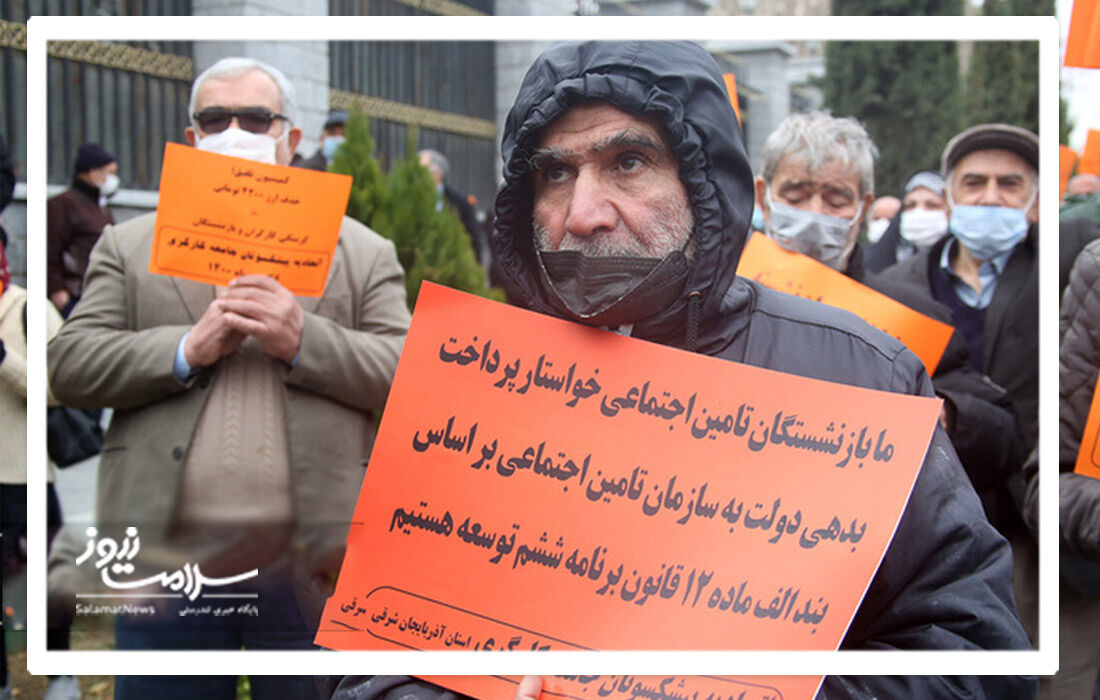 کمیسیون تلفیق!
حذف ارز ۴۲۰۰ تومانی
=
گرسنگی کارگران و بازنشستگان
اتحادیه پیشکسوتان جامعه کارگری
ماه ۱۴۰۰
ما بازنشستگان تامین اجتماعی خواستار پرداخت
بدهی دولت به سازمان تامین اجتماعی بر اساس
بند الف ماده ۱۲ قانون برنامه ششم توسعه هستیم
استان آذربایجان شرقی
پیشکسوتان
سلامت نیوز
SalamatNews
پایگاه خبری تندرستی